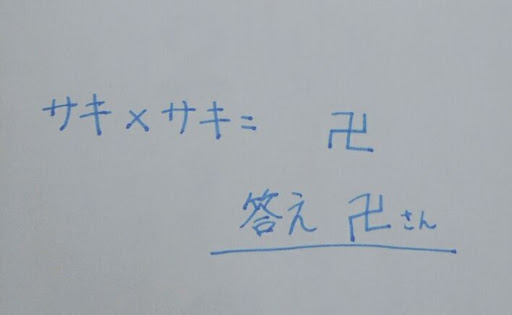 サキ×サキ= 卍
答え 卍さん